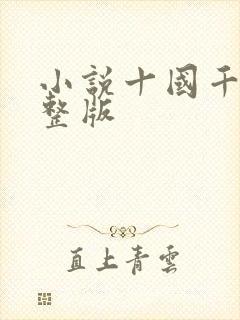 小説十國千
整版
直上青雲